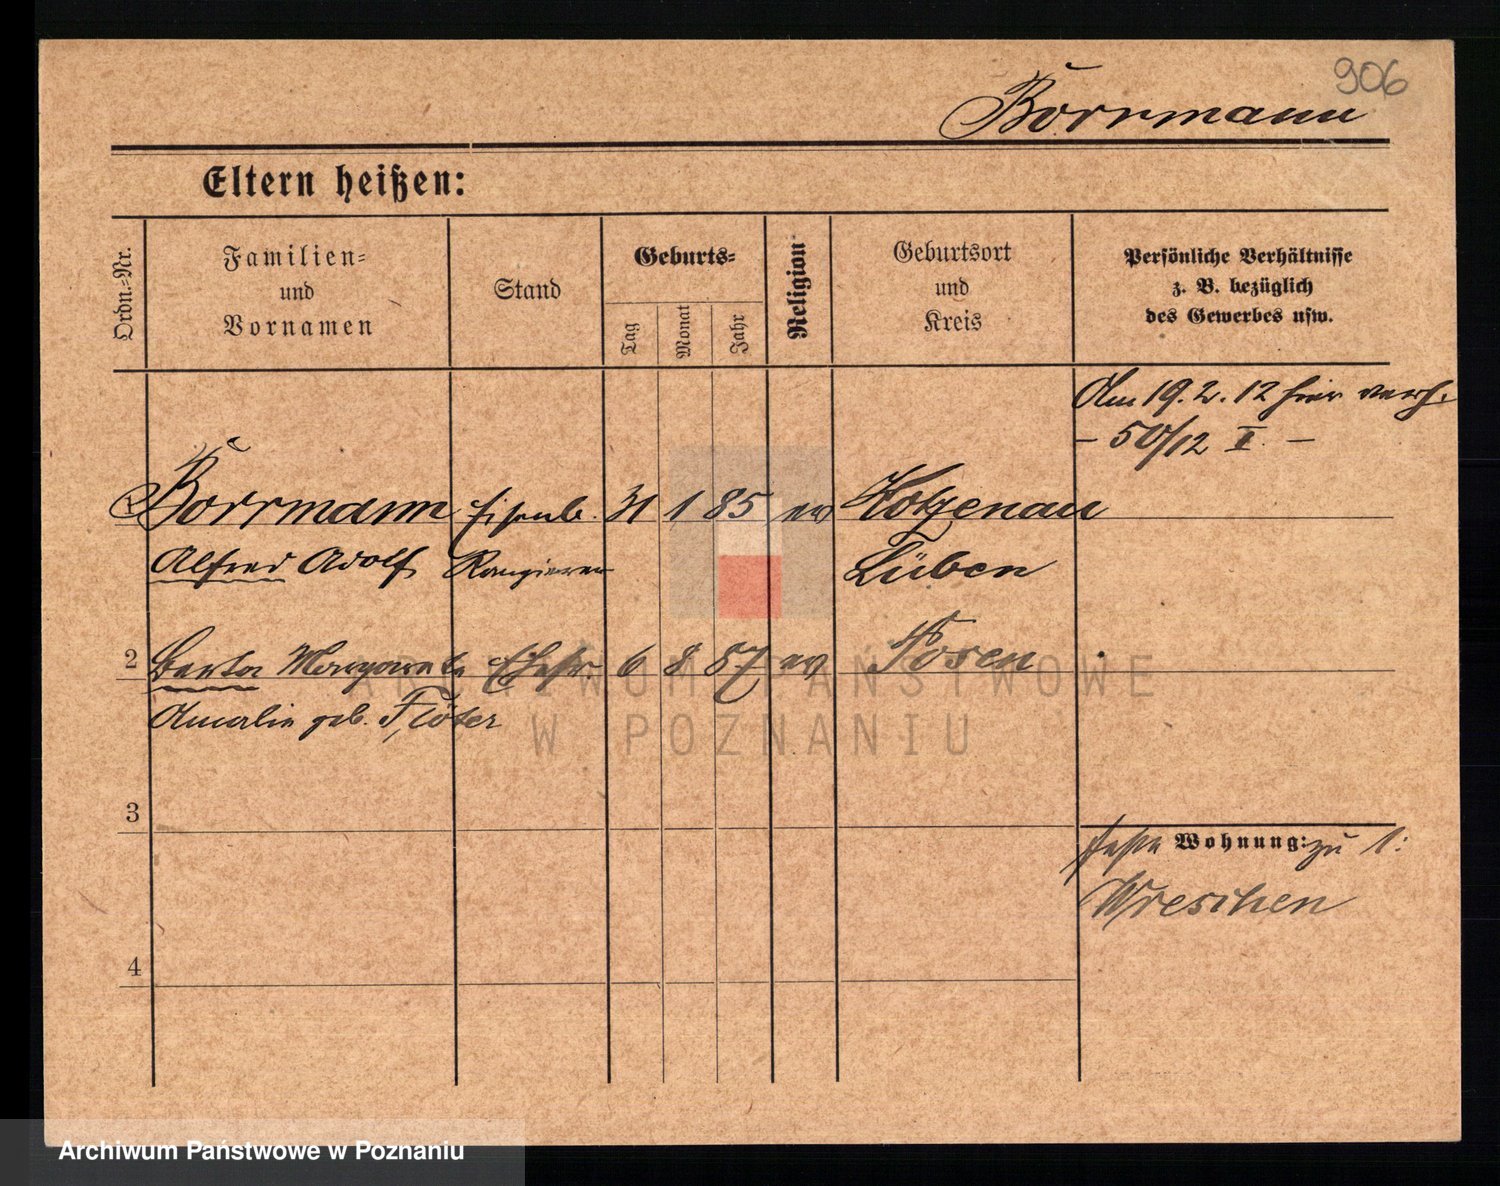 906
Borrmann
Eltern heißen:
Ordn.-Nr.
Familien-
und
Vornamen
Stand
Geburts-
Tag
Monat
Jahr
Religion
Geburtsort
und
Kreis
Persönliche Verhältnisse
z. B. bezüglich
des Gewerbes usw.
Am 19.2.12 hier verh.
- 50/12 I. -
1 Borrmann Eisenb. 31 1 85 ev
Alfred Adolf Rangierer Lüben
2 Berta Margarete Ehefr. 6 8 87 ev Posen
Amalie geb. Flöter
3
feste Wohnung: zu 1:
Wreschen
4
ARCHIWUM PAŃSTWOWE
W POZNANIU
Archiwum Państwowe w Poznaniu